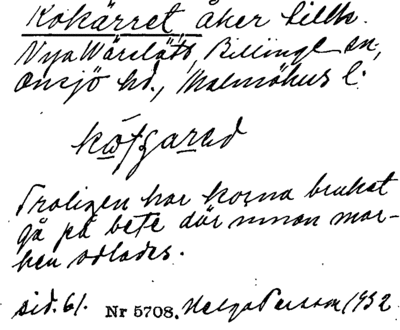 Kokärret, åker tillh.
Nya Wäralöts, Billinge sn,
Onsjö hd., Malmöhus l.
Troligen har korna brukat
gå på bete där innan mar-
ken odlades.
sid. 61. Nr 5708. Helge Persson 1932